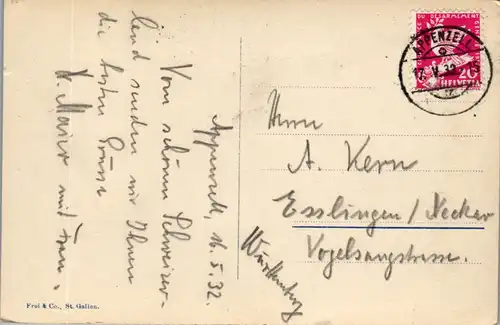 Appenzell, 16.5.32.
Vom schönen Schweizer-
land senden wir Ihnen
die besten Grüsse
K. Maier und Frau.
Herrn
A. Kern
Esslingen/Neckar
Vogelsangstrasse.
Württemberg
DU DESARMEMENT
APPENZELL
17.V.32
20
HELVETIA
Frei & Co., St. Gallen.